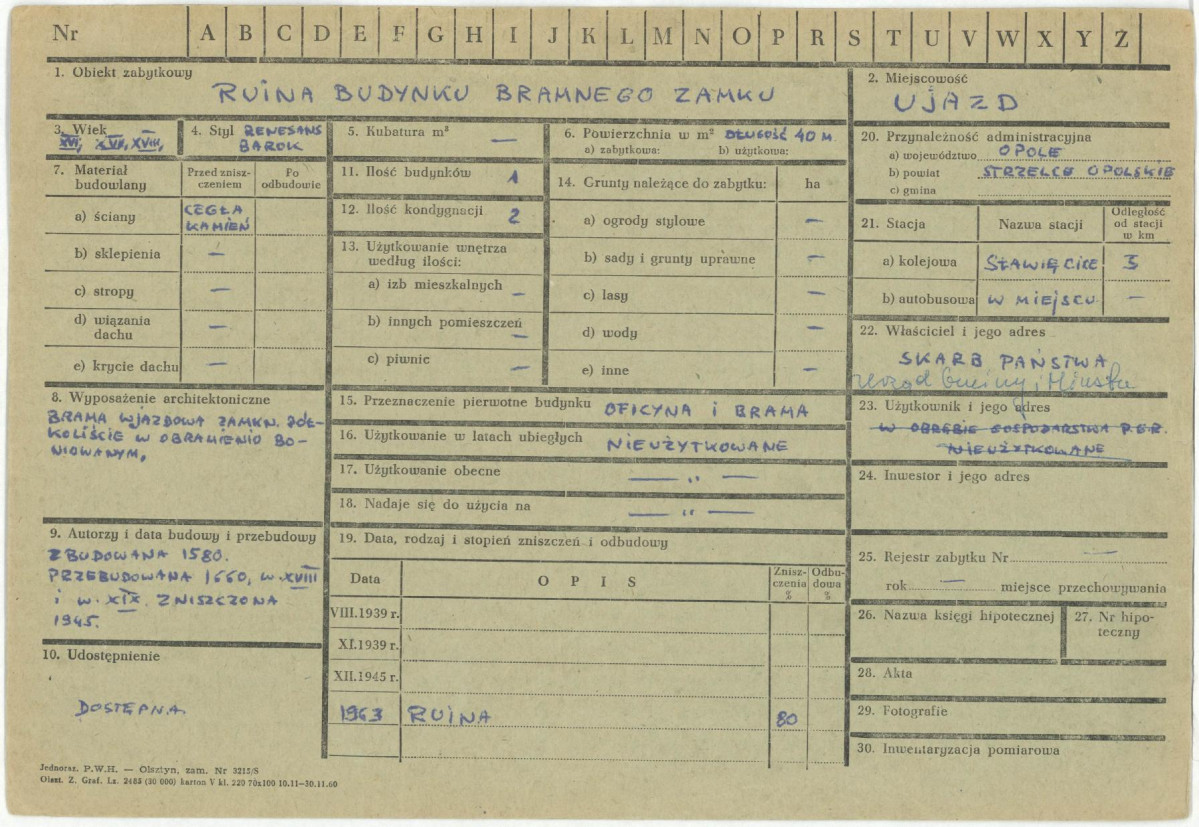 Nr A B C D E F G H I J K L M N O P R S T U V W X Y Z
1. Obiekt zabytkowy
RUINA BUDYNKU BRAMNEGO ZAMKU
2. Miejscowość
UJAZD
3. Wiek
XVI, XVII, XVIII,
4. Styl RENESANS
BAROK
5. Kubatura m³
—
6. Powierzchnia w m² DŁUGOŚĆ 40 M
a) zabytkowa: b) użytkowa:
7. Materiał
budowlany
Przed znisz-
czeniem
Po
odbudowie
a) ściany CEGŁA
KAMIEŃ
b) sklepienia —
c) stropy —
d) wiązania
dachu —
e) krycie dachu —
8. Wyposażenie architektoniczne
BRAMA WJAZDOWA ZAMKN. PÓŁ-
KOLIŚCIE W OBRAMIENIO BO-
NIOWANYM,
9. Autorzy i data budowy i przebudowy
ZBUDOWANA 1580.
PRZEBUDOWANA 1660, W XVIII
i W. XIX. ZNISZCZONA
1945.
10. Udostępnienie
DOSTĘPNA
11. Ilość budynków 1
12. Ilość kondygnacji 2
13. Użytkowanie wnętrza
według ilości:
a) izb mieszkalnych —
b) innych pomieszczeń —
c) piwnic —
14. Grunty należące do zabytku: ha
a) ogrody stylowe —
b) sady i grunty uprawne —
c) lasy —
d) wody —
e) inne —
15. Przeznaczenie pierwotne budynku OFICYNA i BRAMA
16. Użytkowanie w latach ubiegłych NIEUŻYTKOWANE
17. Użytkowanie obecne — „ —
18. Nadaje się do użycia na — „ —
19. Data, rodzaj i stopień zniszczeń i odbudowy
Data OPIS Znisz-
czenia
% Odbu-
dowa
%
VIII.1939 r.
XI.1939 r.
XII.1945 r.
1963 RUINA 80
20. Przynależność administracyjna
a) województwo OPOLE
b) powiat STRZELCE OPOLSKIE
c) gmina
21. Stacja Nazwa stacji Odległość
od stacji
w km
a) kolejowa SŁAWIĘCICE 5
b) autobusowa W MIEJSCU —
22. Właściciel i jego adres
SKARB PAŃSTWA
Urząd Gminy i Miasta
23. Użytkownik i jego adres
W OBRĘBIE GOSPODARSTWA P.G.R.
NIEUŻYTKOWANE
24. Inwestor i jego adres
25. Rejestr zabytku Nr —
rok — miejsce przechowywania
26. Nazwa księgi hipotecznej
27. Nr hipo-
teczny
28. Akta
29. Fotografie
30. Inwentaryzacja pomiarowa
Jednoraz. P.W.H. — Olsztyn, zam. Nr 3215/S
Olszt. Z. Graf. Lz. 2485 (30 000) karton V kl. 220 70x100 10.11—30.11.60